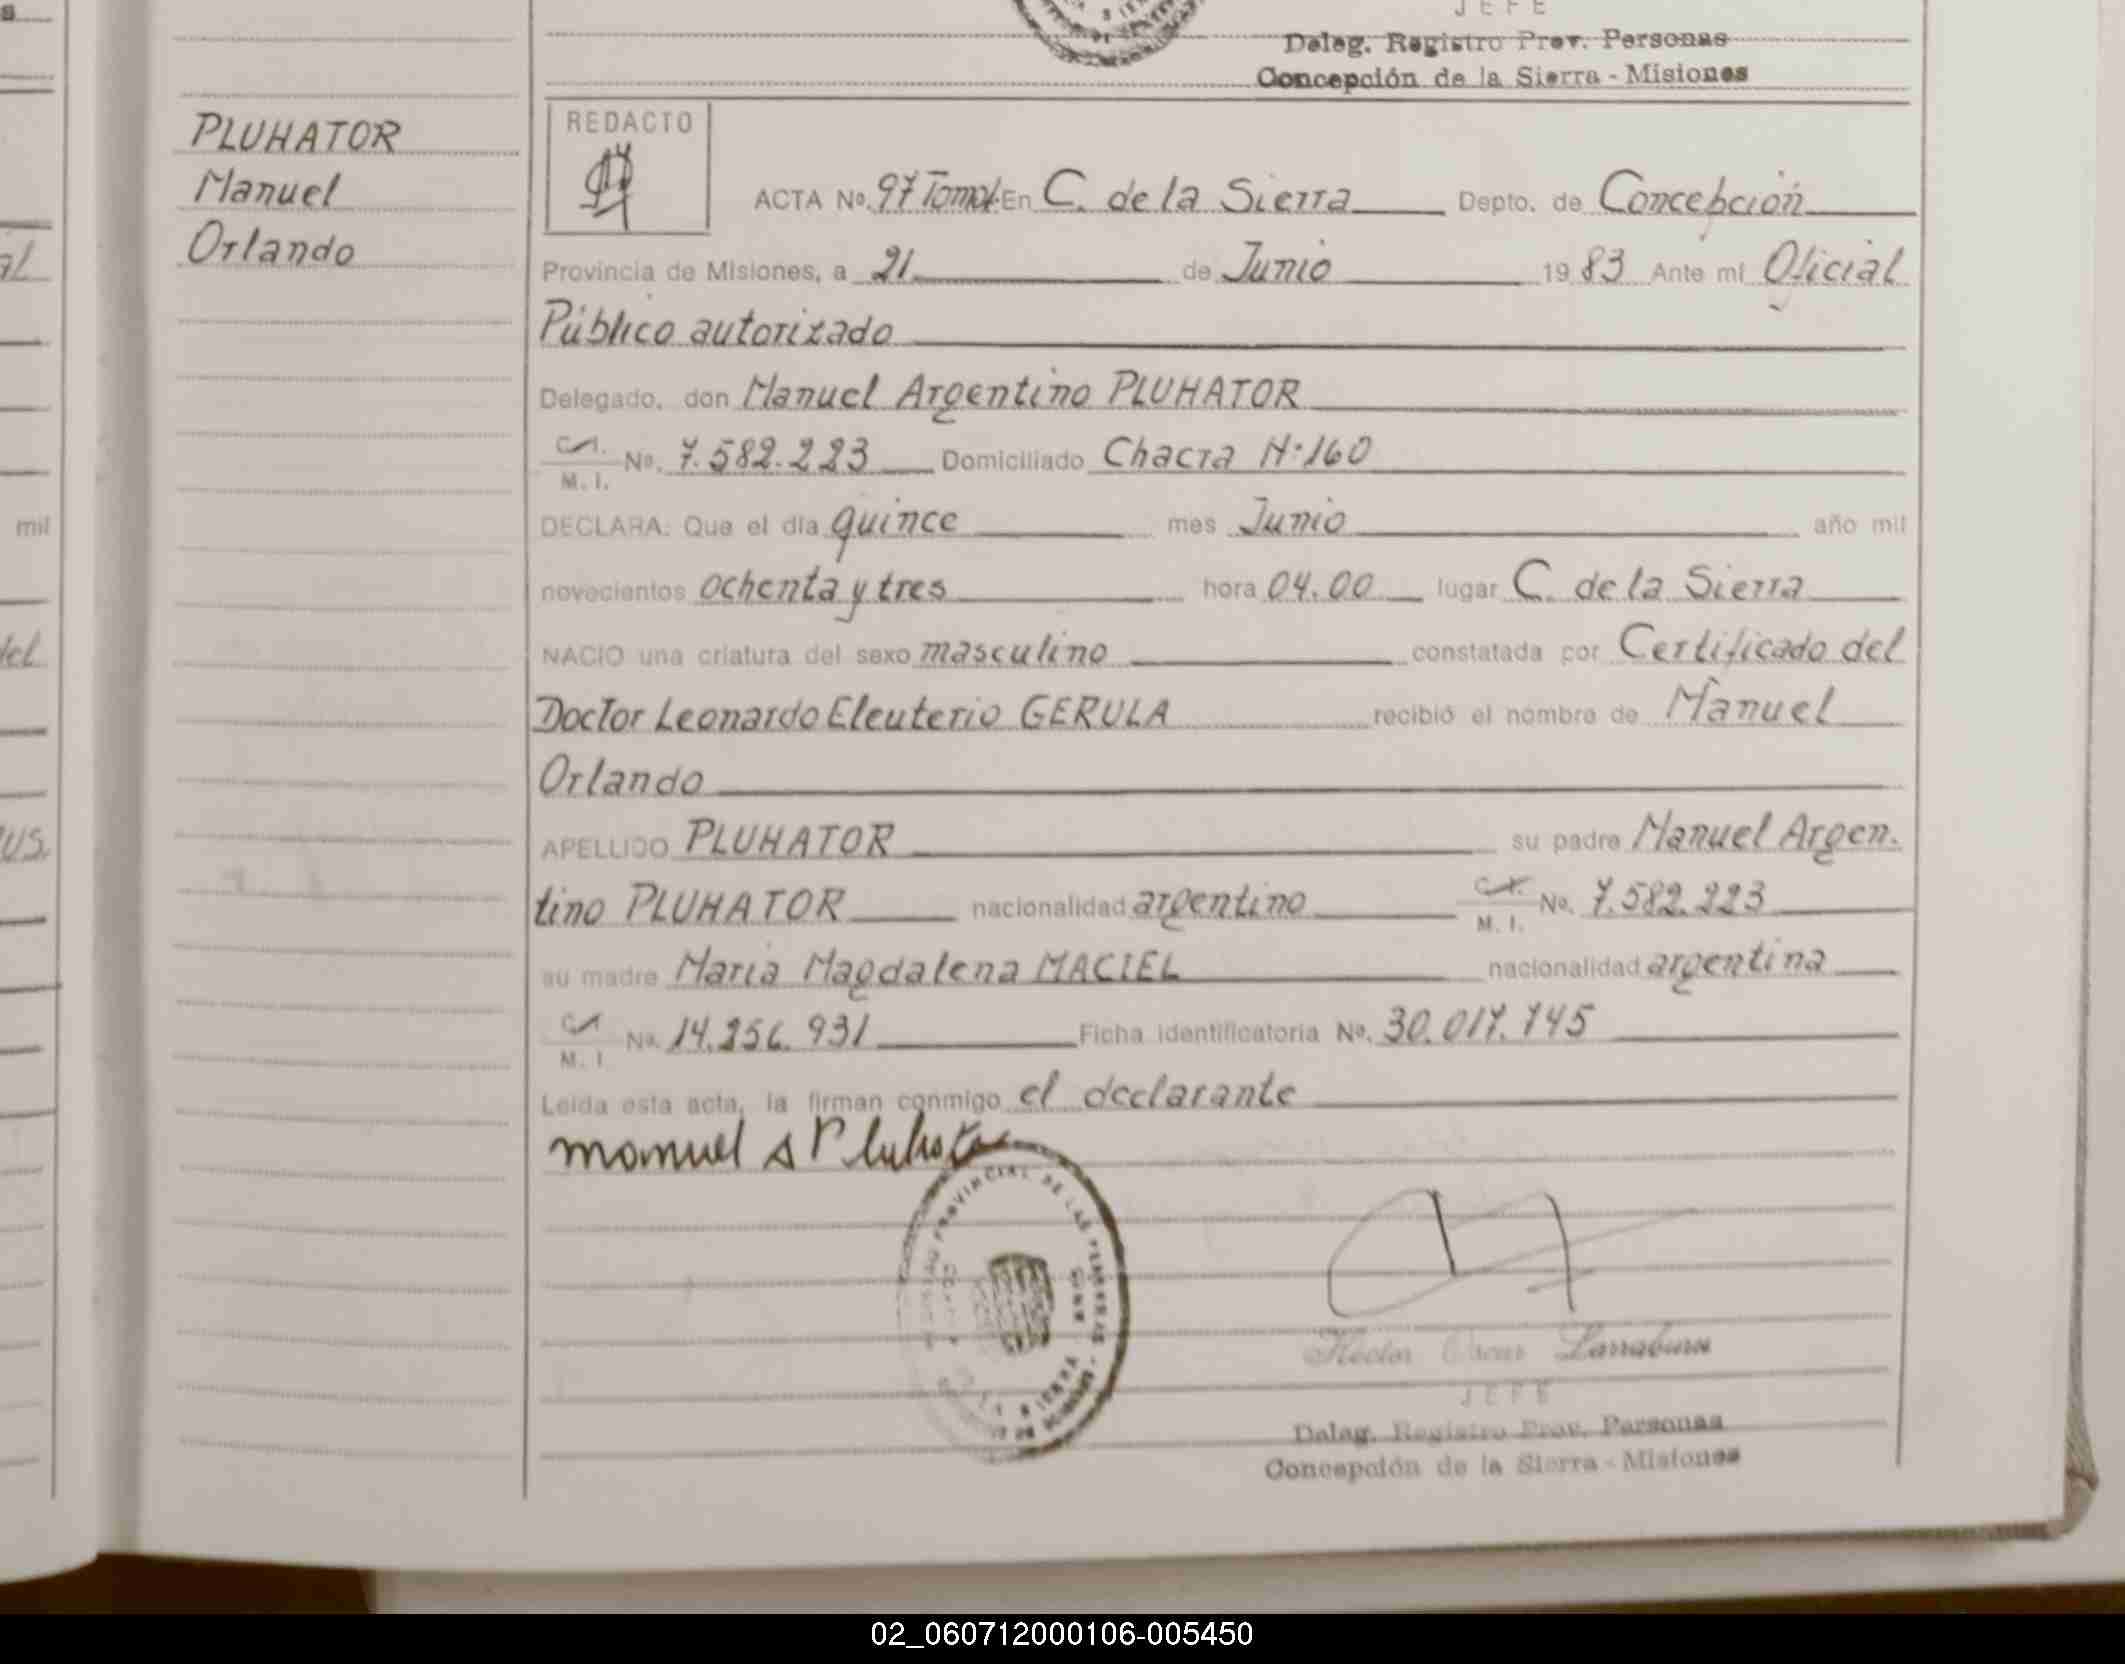 s
JEFE
Deleg. Registro Prov. Personas
Concepción de la Sierra - Misiones
PLUHATOR
Manuel
Orlando
REDACTO
ACTA No. 97 Tomo I En C. de la Sierra Depto. de Concepción
Provincia de Misiones, a 21 de Junio 1983 Ante mí Oficial
Público autorizado
Delegado, don Manuel Argentino PLUHATOR
C.I. M. I. No. 7.582.223 Domiciliado Chacra N:160
DECLARA: Que el día quince mes Junio año mil
novecientos ochenta y tres hora 04.00 lugar C. de la Sierra
NACIO una criatura del sexo masculino constatada por Certificado del
Doctor Leonardo Eleuterio GERULA recibió el nombre de Manuel
Orlando
APELLIDO PLUHATOR su padre Manuel Argen.
tino PLUHATOR nacionalidad argentino C.I. M. I. No. 7.582.223
su madre María Magdalena MACIEL nacionalidad argentina
C.I. M. I No. 14.256.931 Ficha identificatoria No. 30.017.745
Leída esta acta, la firman conmigo el declarante
manuel A Pluhator
PROVINCIAL DE LAS PERSONAS
SIERRA
Héctor Oscar
JEFE
Deleg. Registro Prov. Personas
Concepción de la Sierra - Misiones
mil
del
us.
02_060712000106-005450